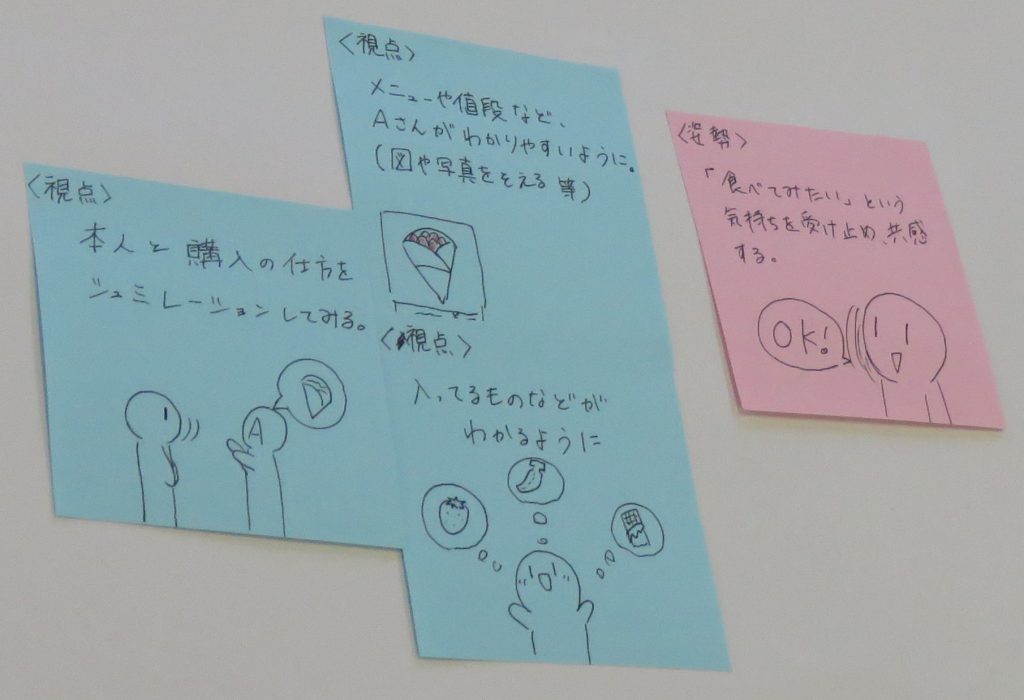 〈視点〉
本人と購入の仕方を
シュミレーションしてみる。
A
〈視点〉
メニューや値段など、
Aさんがわかりやすいように。
(図や写真をそえる 等)
〈視点〉
入ってるものなどが
わかるように
〈姿勢〉
「食べてみたい」という
気持ちを受け止め、共感
する。
OK!